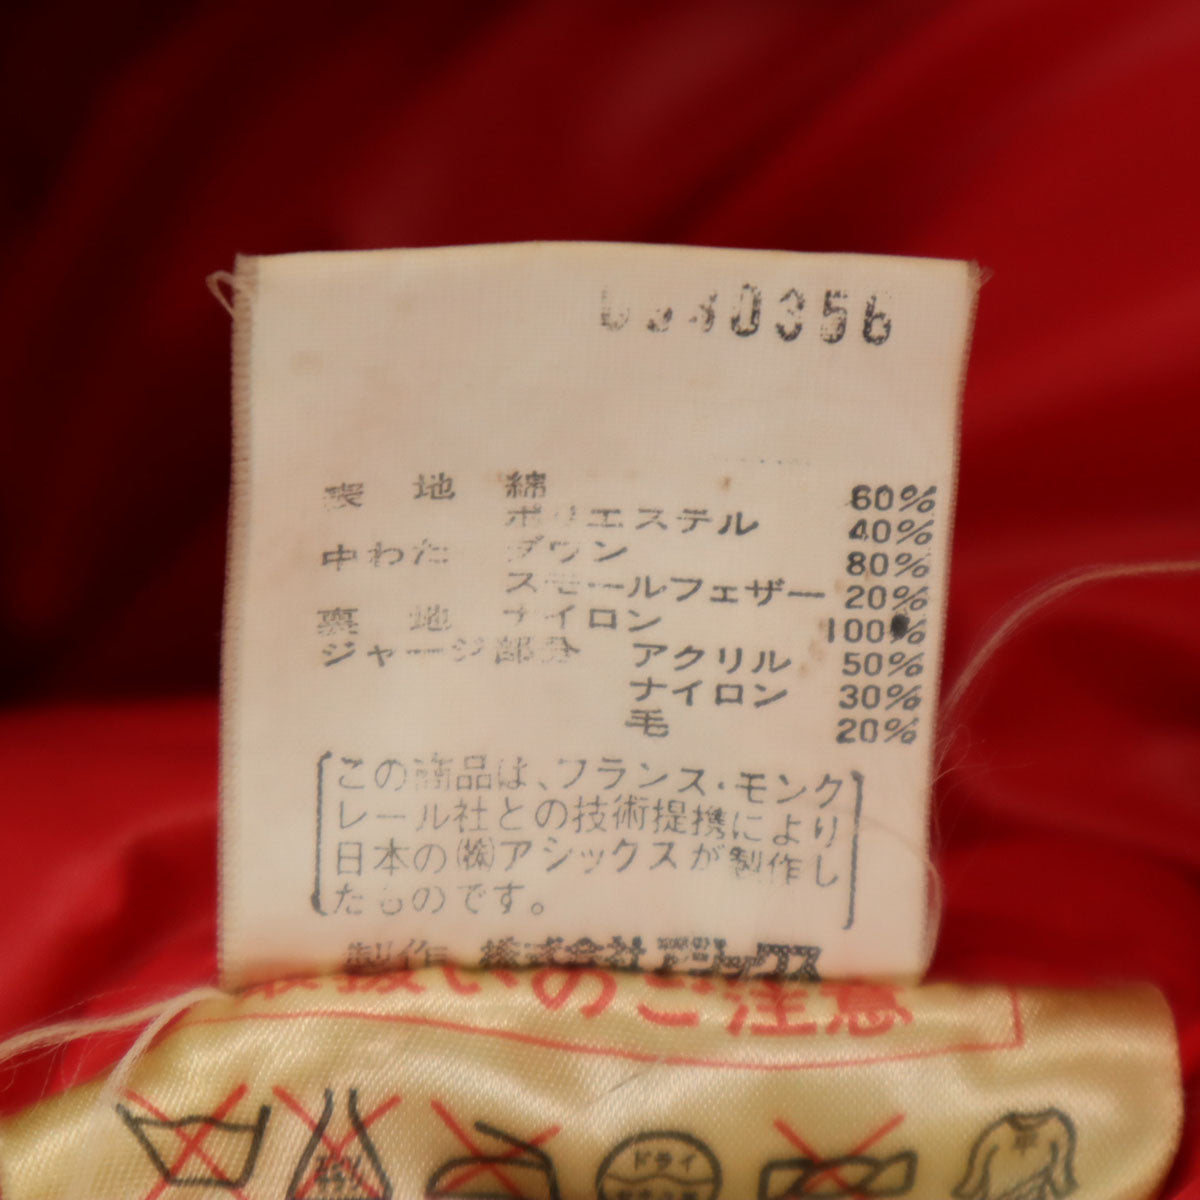 0380356
表地 綿 60%
ポリエステル 40%
中わた ダウン 80%
スモールフェザー 20%
裏地 ナイロン 100%
ジャージ部分 アクリル 50%
ナイロン 30%
毛 20%
この商品は、フランス・モンク
レール社との技術提携により
日本の㈱アシックスが製作し
たものです。
製作 株式会社アシックス
取扱いのご注意
ドライ